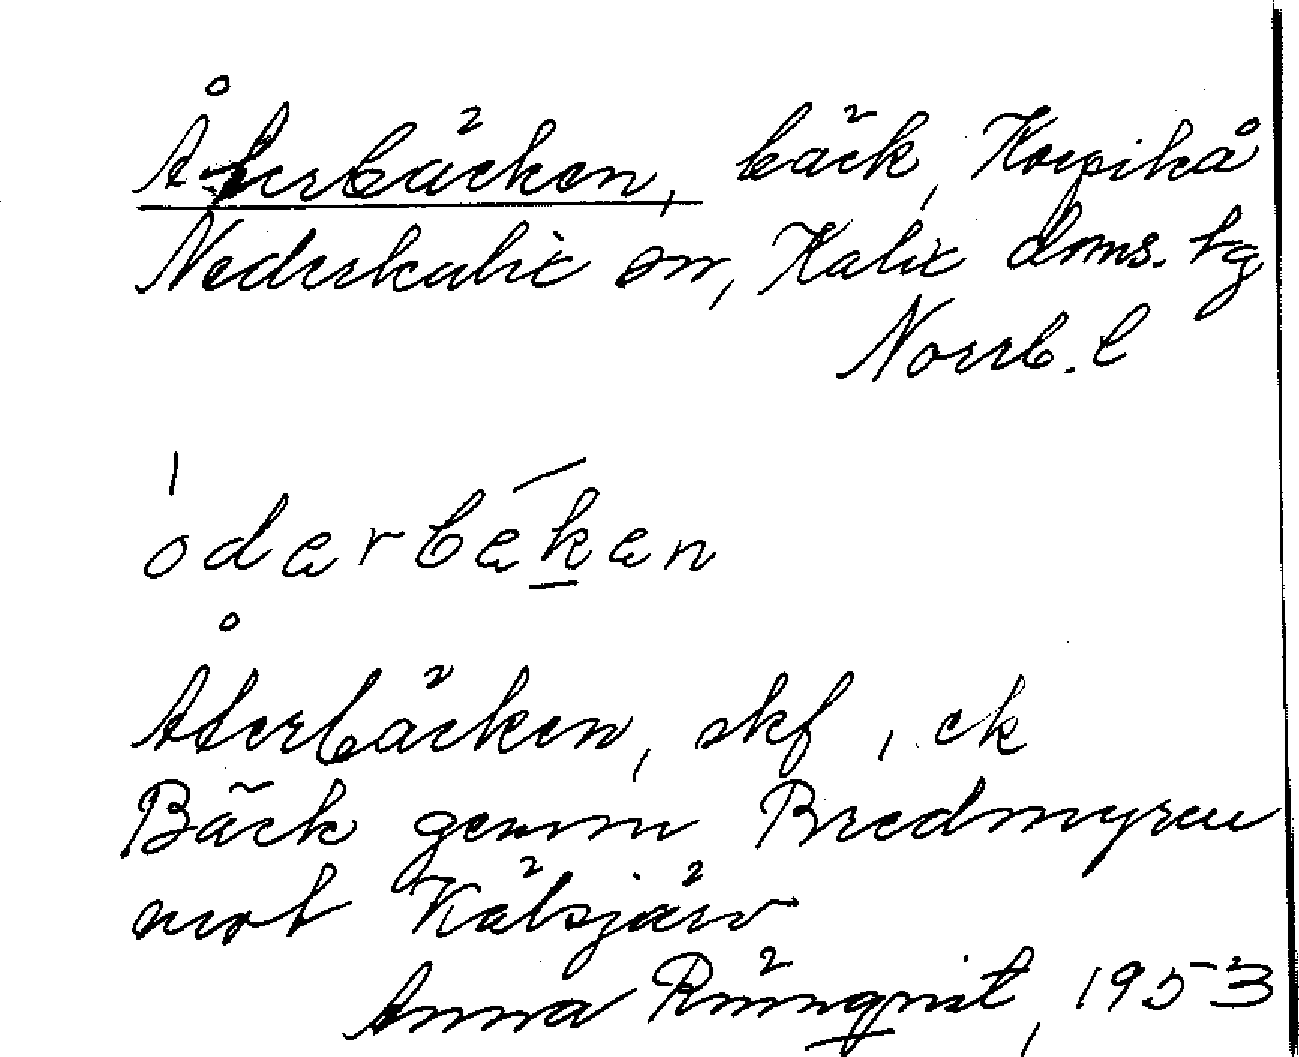 Återbäcken, bäck, Korpikå
Nederkalix sn, Kalix doms. tg
Norrb. l
óderbéken
Återbäcken, skf, ek
Bäck genom Bredmyren
mot Kälsjärv
Anna Rönnqvist, 1953